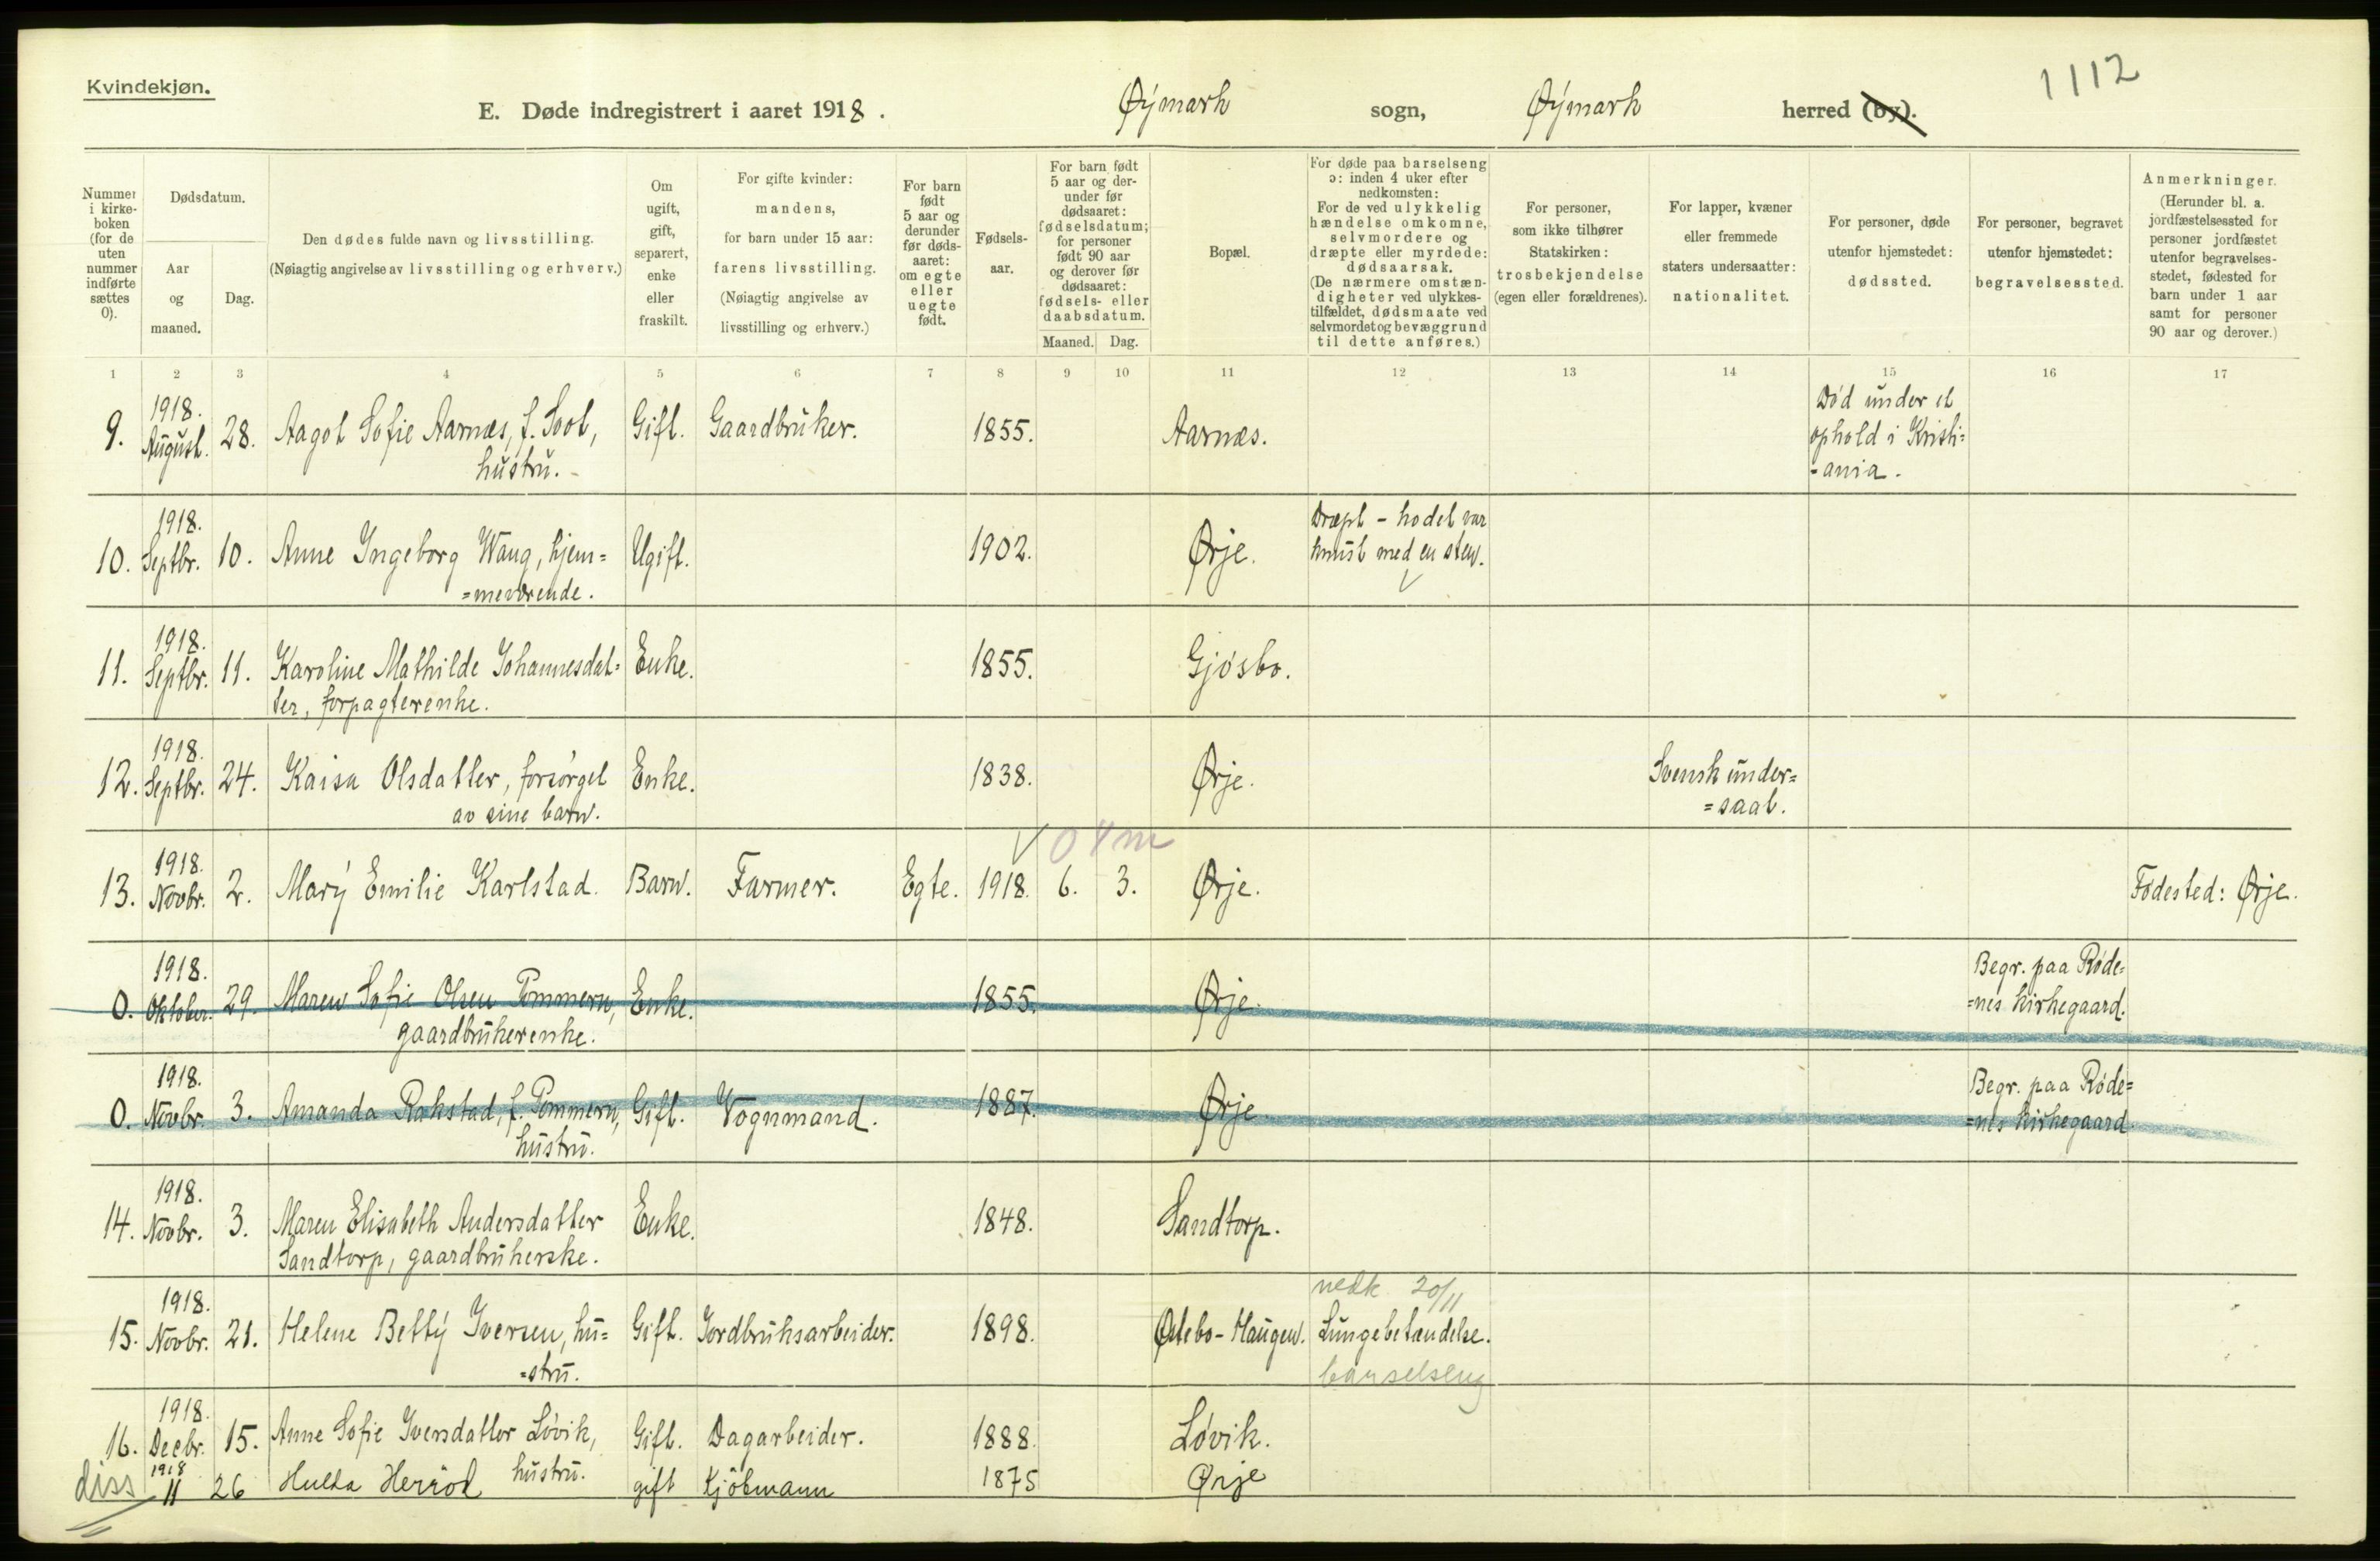 Kvindekjøn.
1112
E. Døde indregistrert i aaret 1918. Øymark sogn, Øymark herred (by).
Nummer i kirke-boken (for de uten nummer indførte sættes 0).
Dødsdatum.
Aar og maaned.
Dag.
Den dødes fulde navn og livsstilling.
(Nøiagtig angivelse av livsstilling og erhverv.)
Om ugift, gift, separert, enke eller fraskilt.
For gifte kvinder: mandens, for barn under 15 aar: farens livsstilling. (Nøiagtig angivelse av livsstilling og erhverv.)
For barn født 5 aar og derunder før døds-aaret: om egte eller uegte født.
Fødsels-aar.
For barn født 5 aar og der-under før dødsaaret: fødselsdatum; for personer født 90 aar og derover før dødsaaret: fødsels- eller daabsdatum.
Maaned. Dag.
Bopæl.
For døde paa barselseng ɔ: inden 4 uker efter nedkomsten: For de ved ulykkelig hændelse omkomne, selvmordere og dræpte eller myrdede: dødsaarsak. (De nærmere omstæn-digheter ved ulykkes-tilfældet, dødsmaate ved selvmordet og bevæggrund til dette anføres.)
For personer, som ikke tilhører Statskirken: trosbekjendelse (egen eller forældrenes).
For lapper, kvæner eller fremmede staters undersaatter: nationalitet.
For personer, døde utenfor hjemstedet: dødssted.
For personer, begravet utenfor hjemstedet: begravelsessted.
Anmerkninger. (Herunder bl. a. jordfæstelsessted for personer jordfæstet utenfor begravelses-stedet, fødested for barn under 1 aar samt for personer 90 aar og derover.)
1 2 3 4 5 6 7 8 9 10 11 12 13 14 15 16 17
9. 1918. August. 28. Aagot Sofie Aarnæs, f. Soot, hustru. Gift. Gaardbruker. 1855. Aarnæs. Død under et ophold i Kristi=-ania.
10. 1918. Septbr. 10. Anne Ingeborg Wang, hjem==meværende. Ugift. 1902. Ørje. Dræpt - hodet var knust med en sten.
11. 1918. Septbr. 11. Karoline Mathilde Johannesdat=ter, forpagterenke. Enke. 1855. Gjøsbo.
12. 1918. Septbr. 24. Kaisa Olsdatter, forsørget av sine barn. Enke. 1838. Ørje. Svensk under==saat.
0 4 m
13. 1918. Novbr. 2. Mary Emilie Karlstad. Barn. Farmer. Egte. 1918. 6. 3. Ørje. Fødested: Ørje.
0. 1918. Oktober. 29. Maren Sofie Olsen Pommern, gaardbrukerenke. Enke. 1855. Ørje. Begr. paa Røde==nes kirkegaard.
0. 1918. Novbr. 3. Amanda Rakstad, f. Pommern, hustru. Gift. Vognmand. 1887. Ørje Begr. paa Røde==nes kirkegaard
14. 1918. Novbr. 3. Maren Elisabeth Andersdatter Sandtorp, gaardbrukerske. Enke. 1848. Sandtorp.
15. 1918. Novbr. 21. Helene Betty Iversen, hu==stru. Gift. Jordbruksarbeider. 1898. Østebo-Haugen. nedk. 20/11 Lungebetændelse. barselseng
16. 1918. Decbr. 15. Anne Sofie Iversdatter Løvik, hustru. Gift. Dagarbeider. 1888. Løvik.
diss 1918 11 26 Hulda Herröd gift Kjöbmann 1875 Ørje